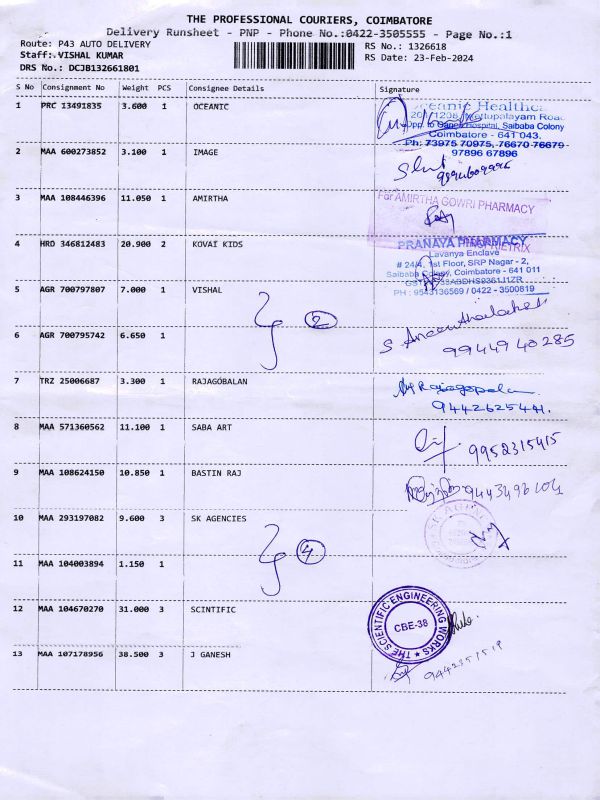 THE PROFESSIONAL COURIERS, COIMBATORE
Delivery Runsheet - PNP - Phone No.:0422-3505555 - Page No.:1
Route: P43 AUTO DELIVERY
RS No.: 1326618
Staff:.VISHAL KUMAR
RS Date: 23-Feb-2024
DRS No.: DCJB132661801
S No Consignment No Weight PCS Consignee Details Signature
1 PRC 13491835 3.600 1 OCEANIC
Oceanic Healthca
Mettupalayam Road
Hospital, Saibaba Colony
Coimbatore - 641 043.
Ph: 73975 70975, 76670 76679
97896 67896
2 MAA 600273852 3.100 1 IMAGE
3 MAA 108446396 11.050 1 AMIRTHA
For AMIRTHA GOWRI PHARMACY
PROPRIETRIX
4 HRD 346812483 20.900 2 KOVAI KIDS
PRANAYA PHARMACY
Lavanya Enclave
# 24/4, 1st Floor, SRP Nagar - 2,
Saibaba Colony, Coimbatore - 641 011
PH : 9543136569 / 0422 - 3500819
5 AGR 700797807 7.000 1 VISHAL
2
6 AGR 700795742 6.650 1
99449 40285
7 TRZ 25006687 3.300 1 RAJAGOBALAN
Rajagopalan
8 MAA 571360562 11.100 1 SABA ART
9952315415
9 MAA 108624150 10.850 1 BASTIN RAJ
10 MAA 293197082 9.600 3 SK AGENCIES
4
11 MAA 104003894 1.150 1
12 MAA 104670270 31.000 3 SCINTIFIC
THE SCIENTIFIC ENGINEERING WORKS
CBE-38
13 MAA 107178956 38.500 3 J GANESH